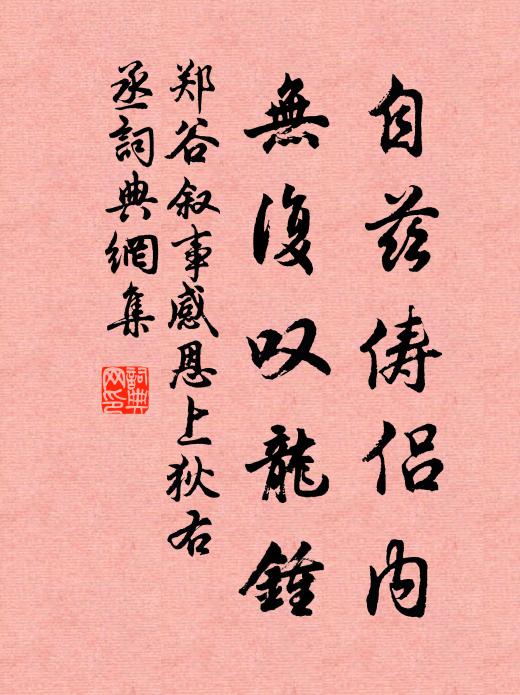 自茲儔侣内
無復叹龍鍾
郑谷叙事感恩上狄右
丞詞典網集
詞典
网印